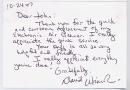 10-24-07
Dear John:
Thank you for the quick
and courteous refund of my
Electronic Air Cleaner. I really
appreciate the good service.
Your staff is all so very
helpful and friendly.
I really appreciate everything
you've done!
Gratefully,
David